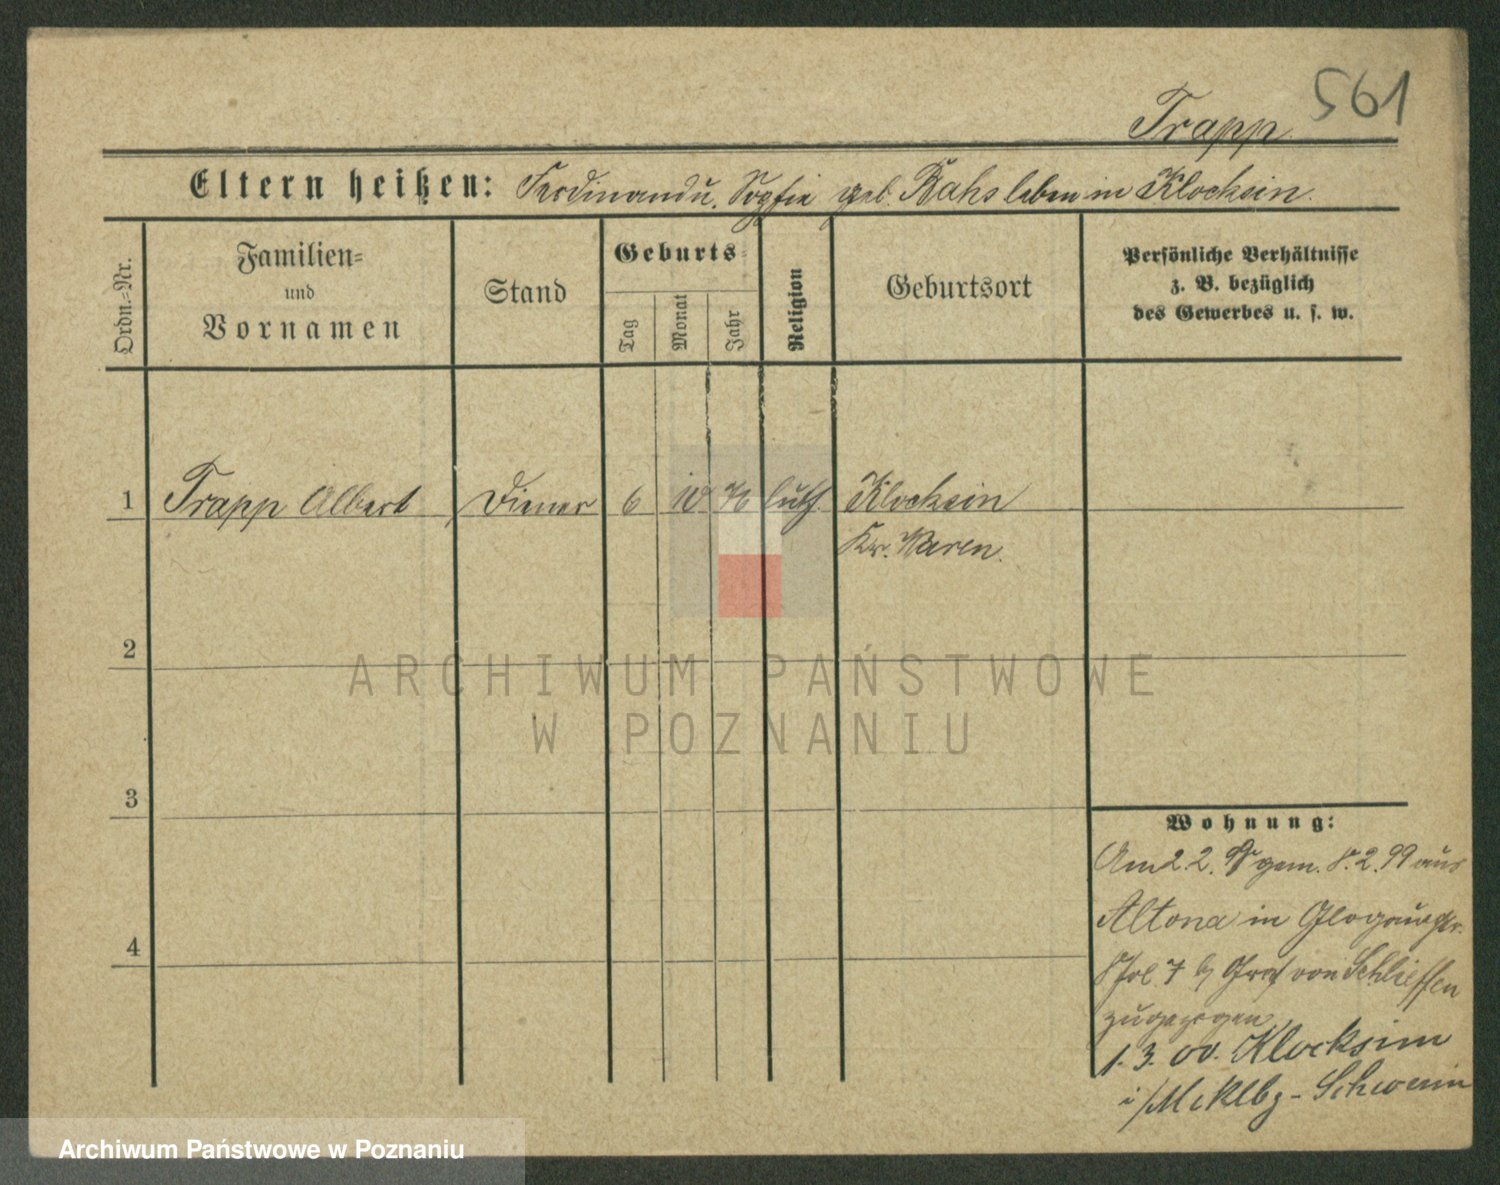 561
Trapp.
Eltern heißen: Ferdinand u. Sophie geb. Rahs leben in Klocksin.
Ordn.=Nr.
Familien=
und
Vornamen
Stand
Geburts=
Tag
Monat
Jahr
Religion
Geburtsort
Persönliche Verhältnisse
z. B. bezüglich
des Gewerbes u. s. w.
1 Trapp Albert Diener 6 10 76 luth. Klocksin
Kr. Waren.
2
3
4
Wohnung:
Am 2.2. gem. 8.2.99 aus
Altona in Glogauerstr.
7 b/ Graf von Schlieffen
zugezogen
1.3.00. Klocksin
i/Mcklbg-Schwerin
ARCHIWUM PAŃSTWOWE
W POZNANIU
Archiwum Państwowe w Poznaniu